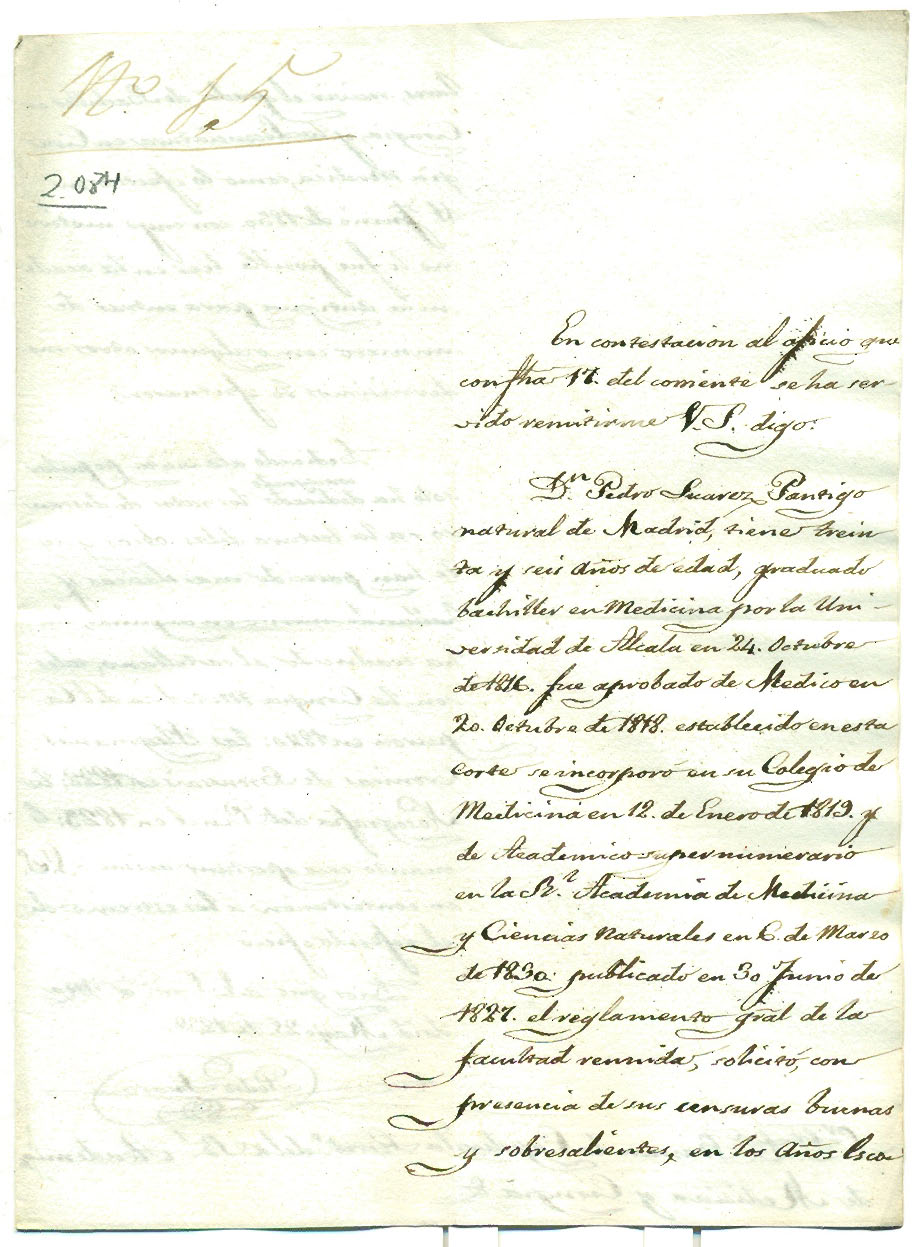 No 55
2.084
En contestacion al oficio que
con fha 17. del corriente se ha ser-
vido remitirme V.S. digo:
Dn Pedro Suarez Pantigo
natural de Madrid, tiene trein
ta y seis años de edad, graduado
bachiller en Medicina por la Uni-
versidad de Alcala en 24. Octubre
de 1816. fue aprobado de Medico en
20. Octubre de 1818. establecido en esta
corte se incorporó en su Colegio de
Medicina en 12. de Enero de 1819. y
de Academico supernumerario
en la Rl. Academia de Medicina
y Ciencias naturales en 6. de Marzo
de 1830: publicado en 30 Junio de
1827. el reglamento gral de la
facultad reunida, solicitó, con
presencia de sus censuras buenas
y sobresalientes, en los años Esco-